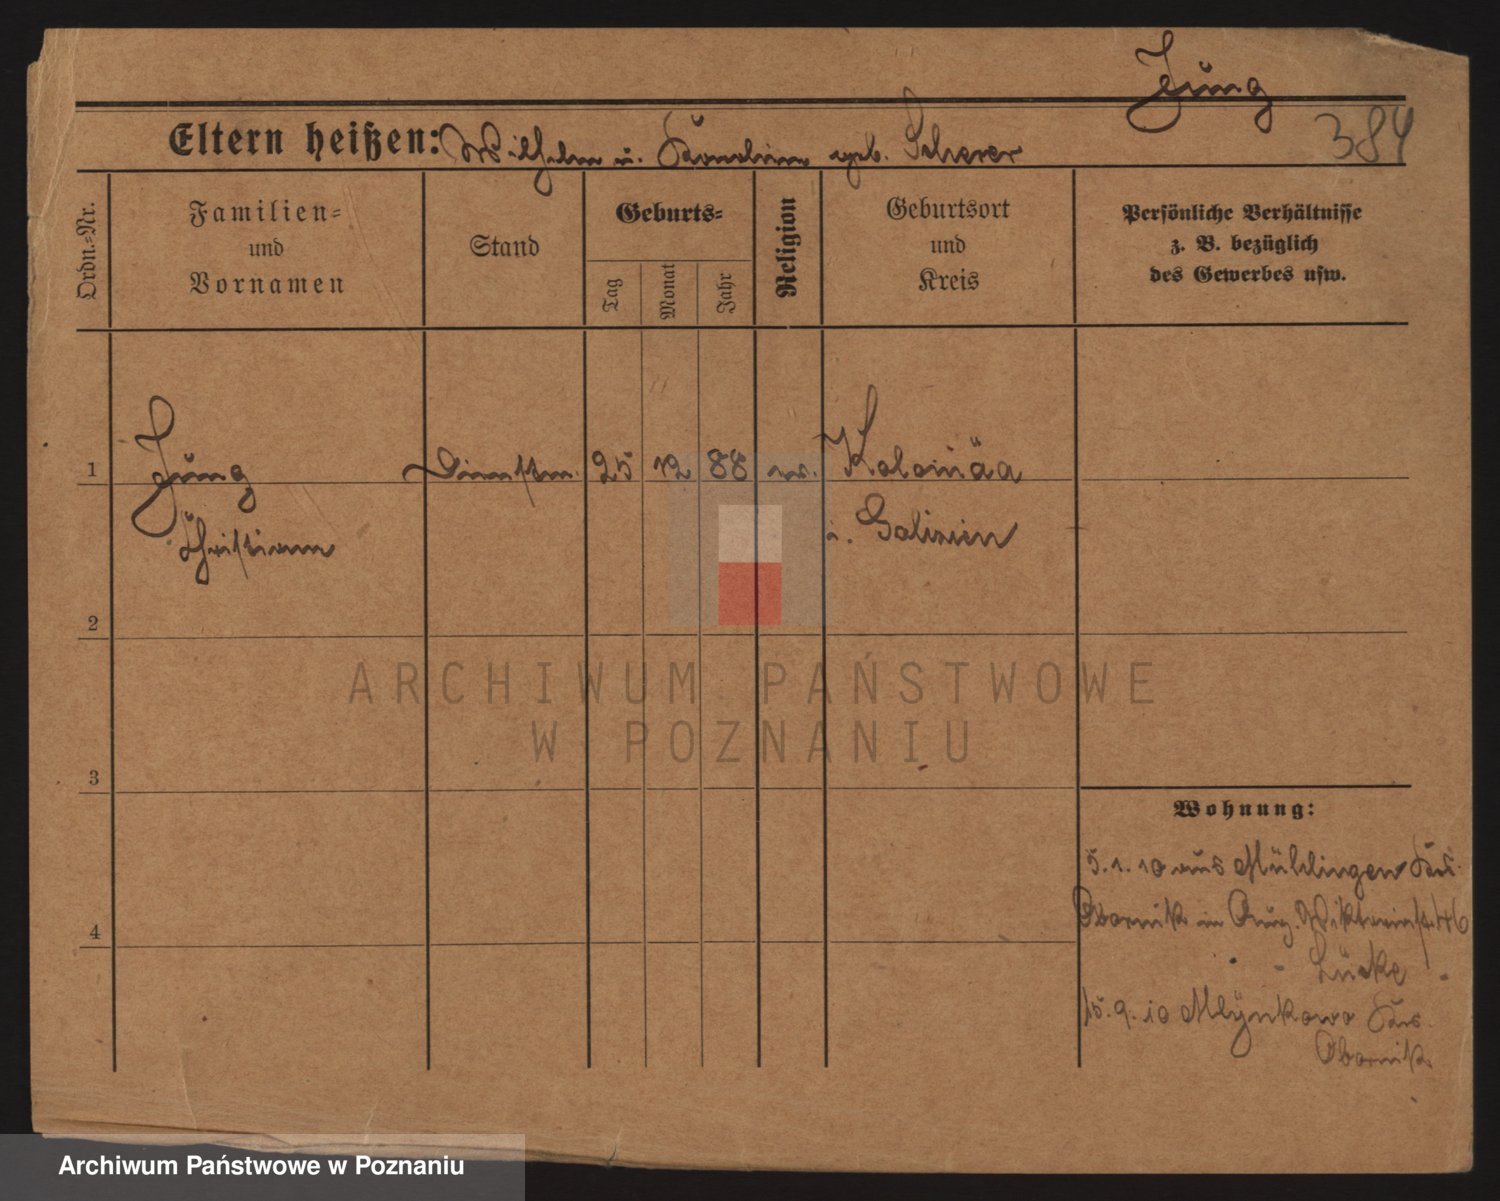 Jung
384
Eltern heißen: Wilhelm u. Karoline geb. Scherer
Ordn.-Nr.
Familien-
und
Vornamen
Stand
Geburts-
Tag
Monat
Jahr
Religion
Geburtsort
und
Kreis
Persönliche Verhältnisse
z. B. bezüglich
des Gewerbes usw.
1
Jung
Christian
25
12
88
ev.
Kolomäa
i. Galizien
2
3
4
ARCHIWUM PAŃSTWOWE
W POZNANIU
Wohnung:
5.1.10 aus Mühlingen Krs.
Obornik in Aug. Viktoriastr. 46
Lücke
15.9.10 Mlynkowo Krs.
Obornik
Archiwum Państwowe w Poznaniu